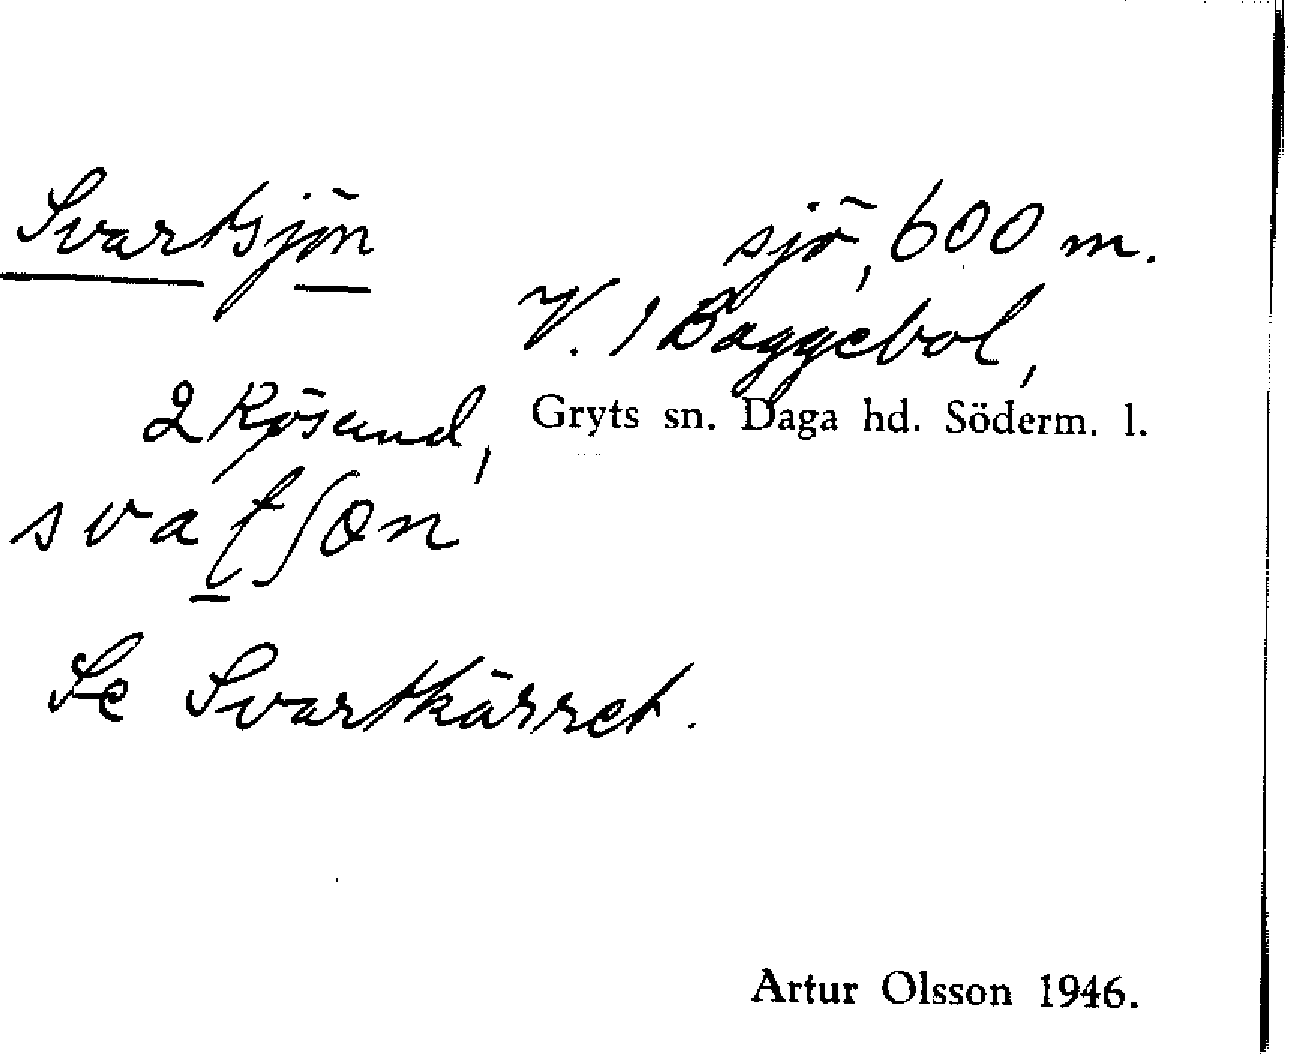 Svartsjön sjö, 600 m.
V. 1 Baggebol,
2 Rösund, Gryts sn. Daga hd. Söderm. l.
svatʃøn
Se Svartkärret.
Artur Olsson 1946.